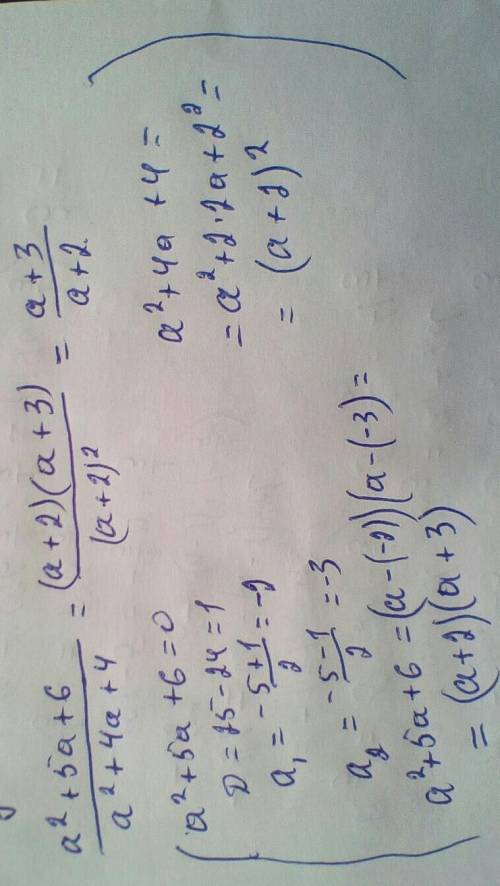 a² + 5a + 6 / a² + 4a + 4 = (a + 2)(a + 3) / (a + 2)² = a + 3 / a + 2
( a² + 5a + 6 = 0
D = 25 - 24 = 1
a₁ = -5 + 1 / 2 = -2
a₂ = -5 - 1 / 2 = -3
a² + 5a + 6 = (a - (-2))(a - (-3) =
= (a + 2)(a + 3)
a² + 4a + 4 =
= a² + 2·2a + 2² =
= (a + 2)² )